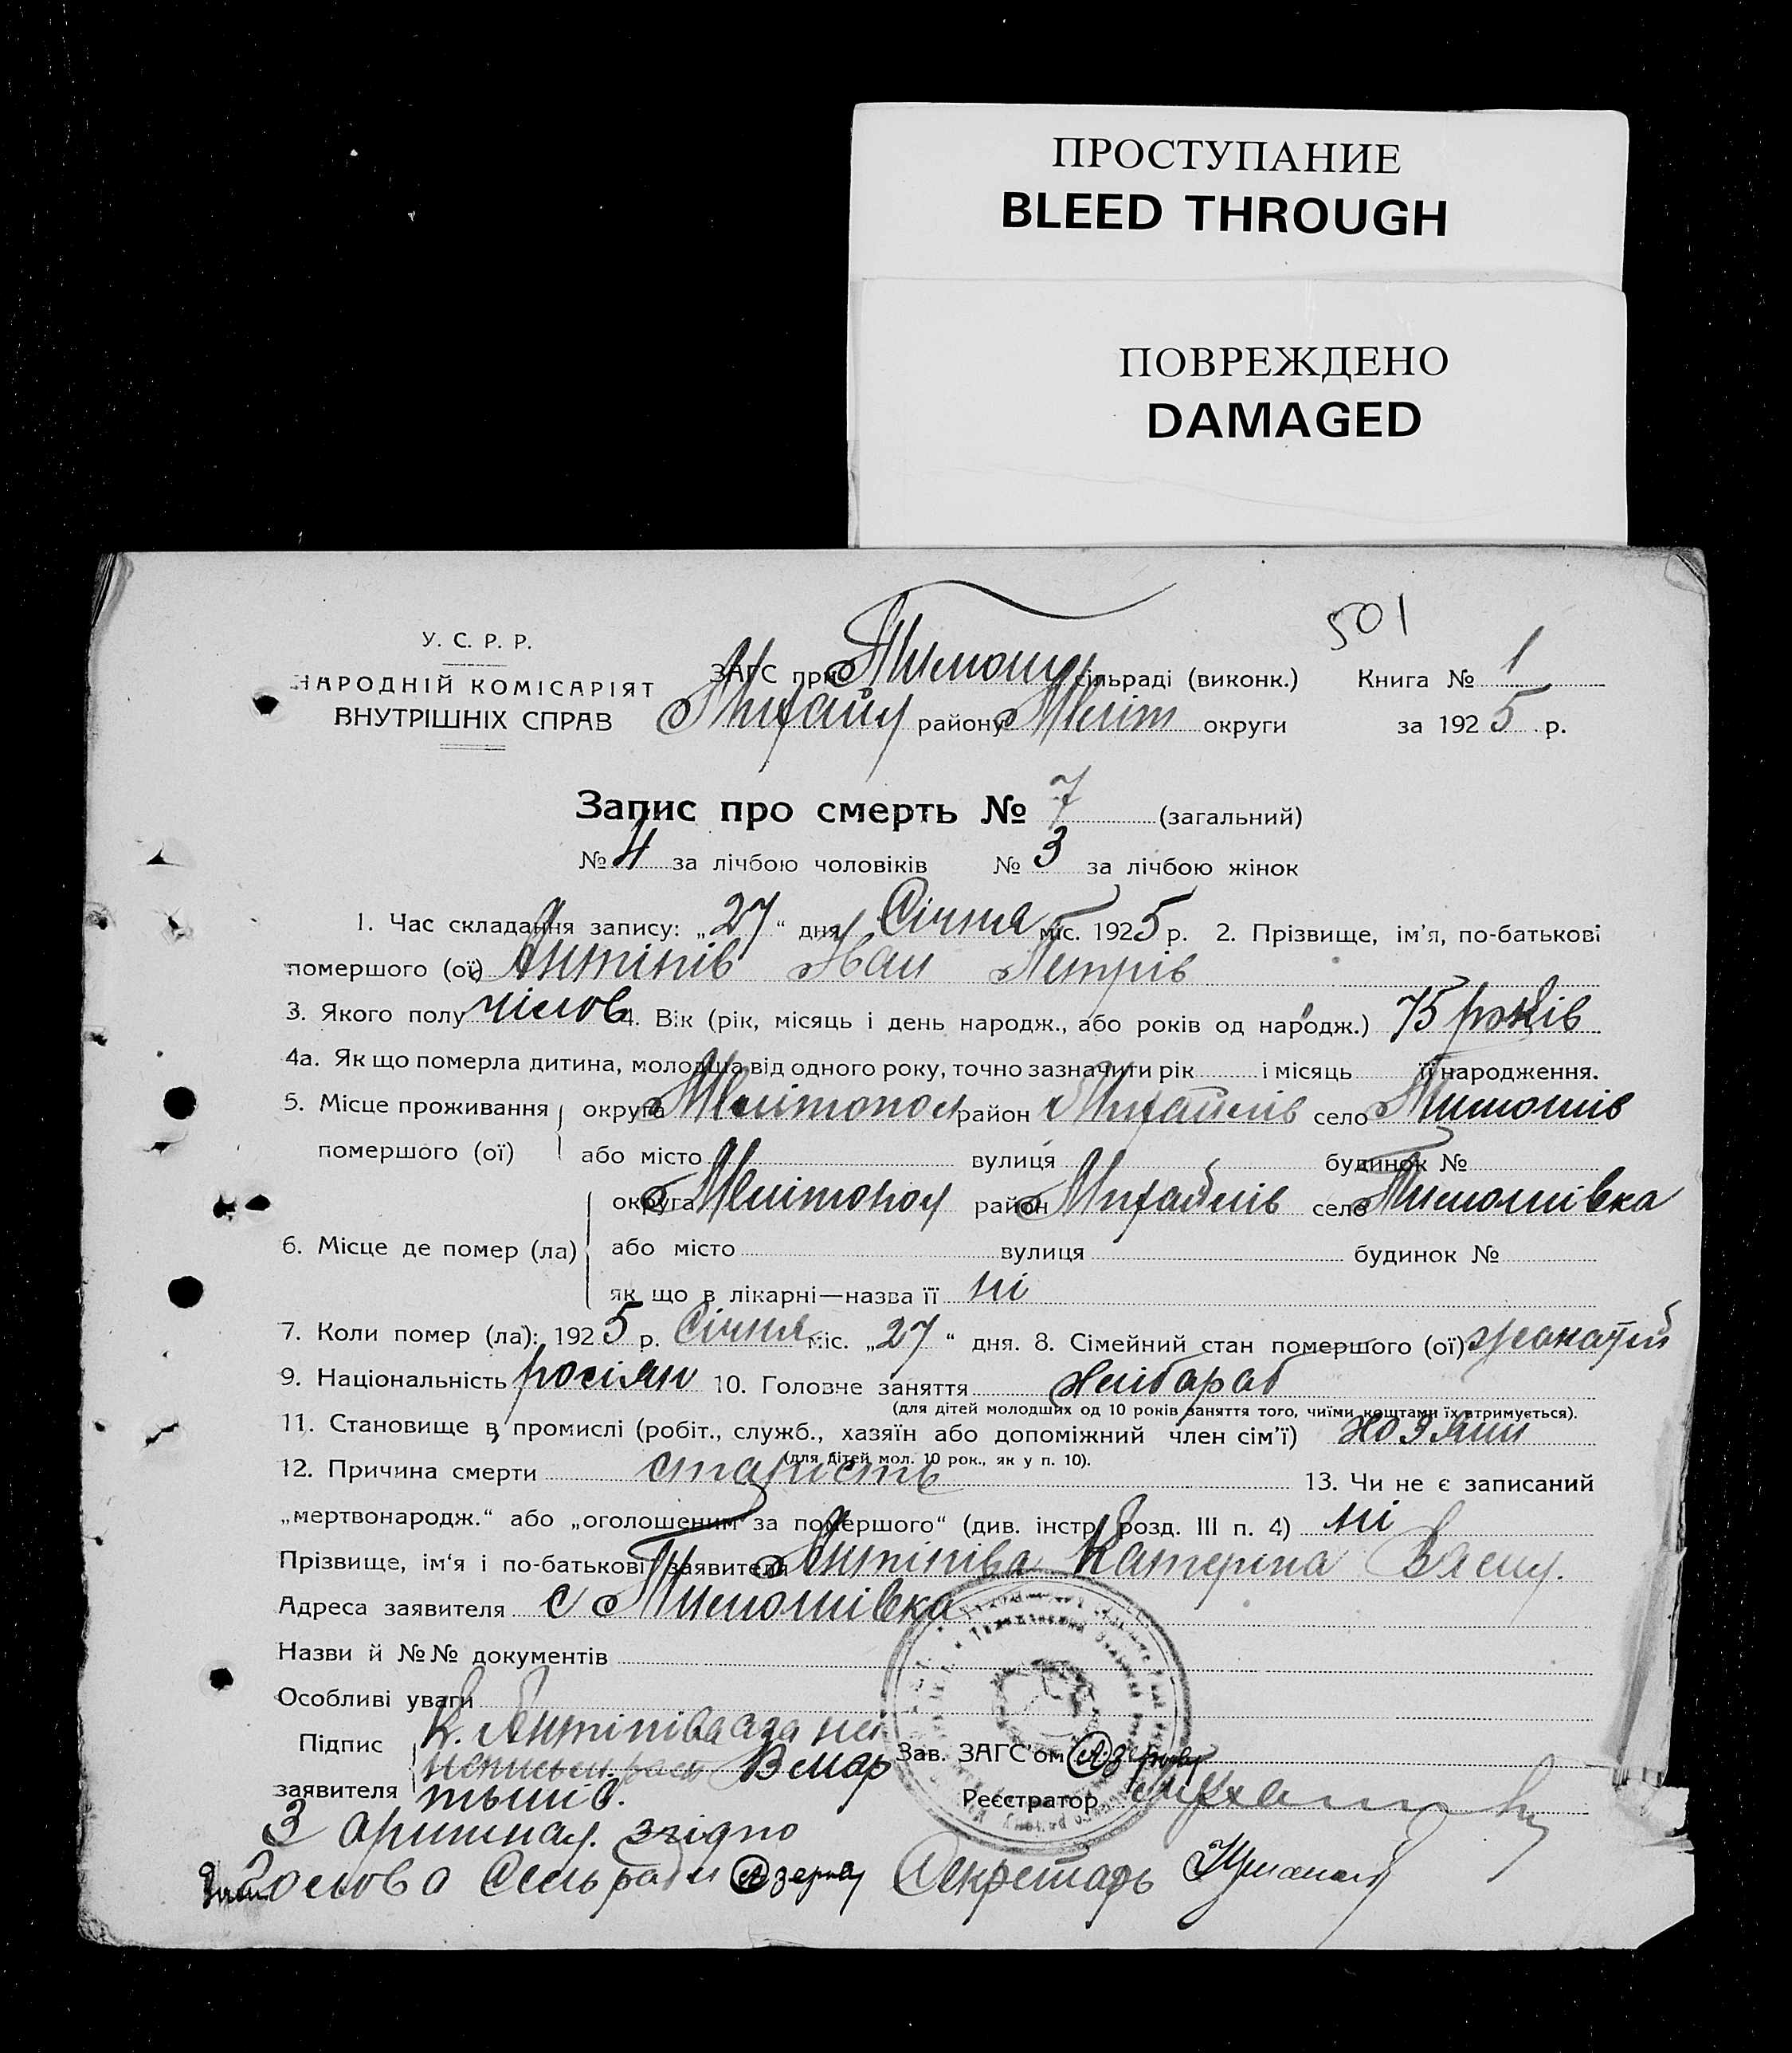 ПРОСТУПАНИЕ
BLEED THROUGH
ПОВРЕЖДЕНО
DAMAGED
501
У. С. Р. Р.
НАРОДНІЙ КОМІСАРІЯТ
ВНУТРІШНІХ СПРАВ
ЗАГС при Тимош сільраді (виконк.) Книга № 1
Михайл району Меліт округи за 1925 р.
Запис про смерть № 7 (загальний)
№ 4 за лічбою чоловіків № 3 за лічбою жінок
1. Час складання запису: „27“ дня Січня міс. 1925 р. 2. Прізвище, ім’я, по-батькові
помершого (ої) Антіпів Іван Петрів
3. Якого полу чолов 4. Вік (рік, місяць і день народж., або років од народж.) 75 років
4а. Як що померла дитина, молодша від одного року, точно зазначити рік і місяць її народження.
5. Місце проживання помершого (ої) округа Мелітопол район Михайлів село Тимошів
або місто вулиця будинок №
6. Місце де помер (ла) округа Мелітопол район Михайлів село Тимошівка
або місто вулиця будинок №
як що в лікарні—назва її ні
7. Коли помер (ла): 1925 р. Січня міс. „27“ дня. 8. Сімейний стан помершого (ої) жонатий
9. Національність росіян 10. Головне заняття хлібароб
(для дітей молодших од 10 років заняття того, чиїми коштами їх втримується).
11. Становище в промислі (робіт., служб., хазяїн або допоміжний член сім’ї) хозяин
(для дітей мол. 10 рок., як у п. 10).
12. Причина смерти старість 13. Чи не є записаний
„мертвонародж.“ або „оголошеним за помершого“ (див. інстр. розд. III п. 4) ні
Прізвище, ім‘я і по-батькові заявителя Антіпіва Катеріна
Адреса заявителя с Тимошівка
Назви й №№ документів
Особливі уваги
Підпис заявителя К. Антіпіва а за не
В Мар
тынів.
Зав. ЗАГС’ом
Реєстратор
З оригінал. згідно
Голова Сельради Секретарь